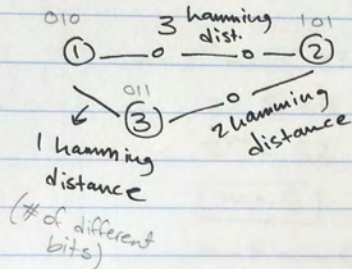 3 hamming
dist.
010
101
1
2
011
3
1 hamming
distance
2 hamming
distance
(# of different
bits)